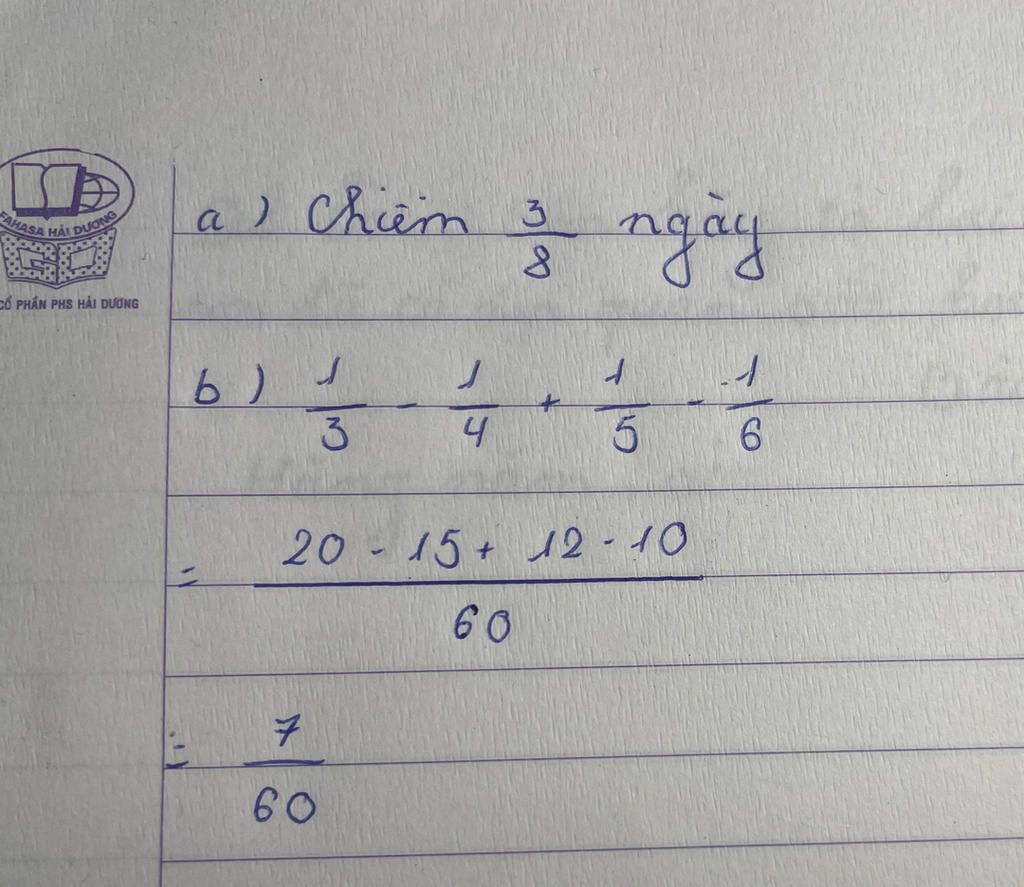 FAHASA HẢI DƯƠNG
CỔ PHẦN PHS HẢI DƯƠNG
a) Chiếm 3/8 ngày
b) 1/3 - 1/4 + 1/5 - 1/6
= 20 - 15 + 12 - 10 / 60
= 7/60